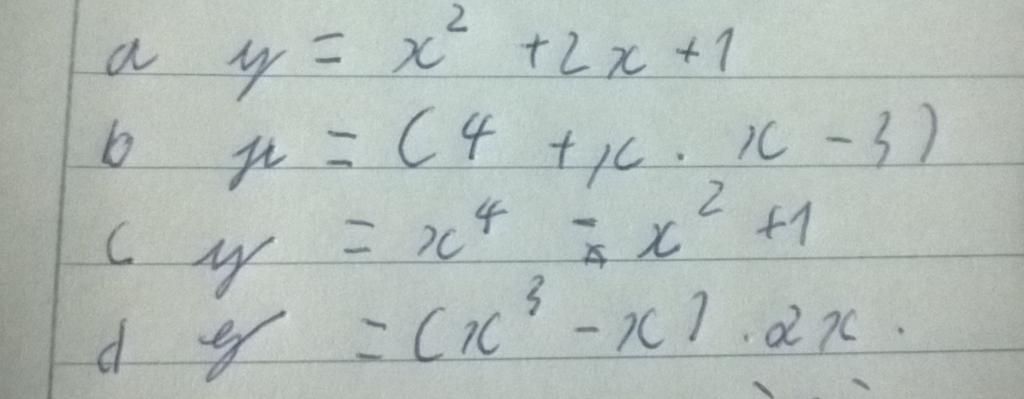 a y = x² + 2x + 1
b y = (4 + x . x - 3)
c y = x⁴ - x² + 1
d y = (x³ - x) . 2x .